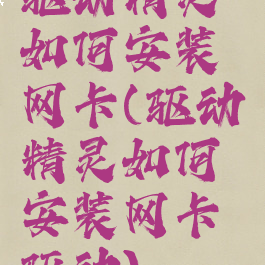 驱动精灵
如何安装
网卡(驱动
精灵如何
安装网卡
驱动)